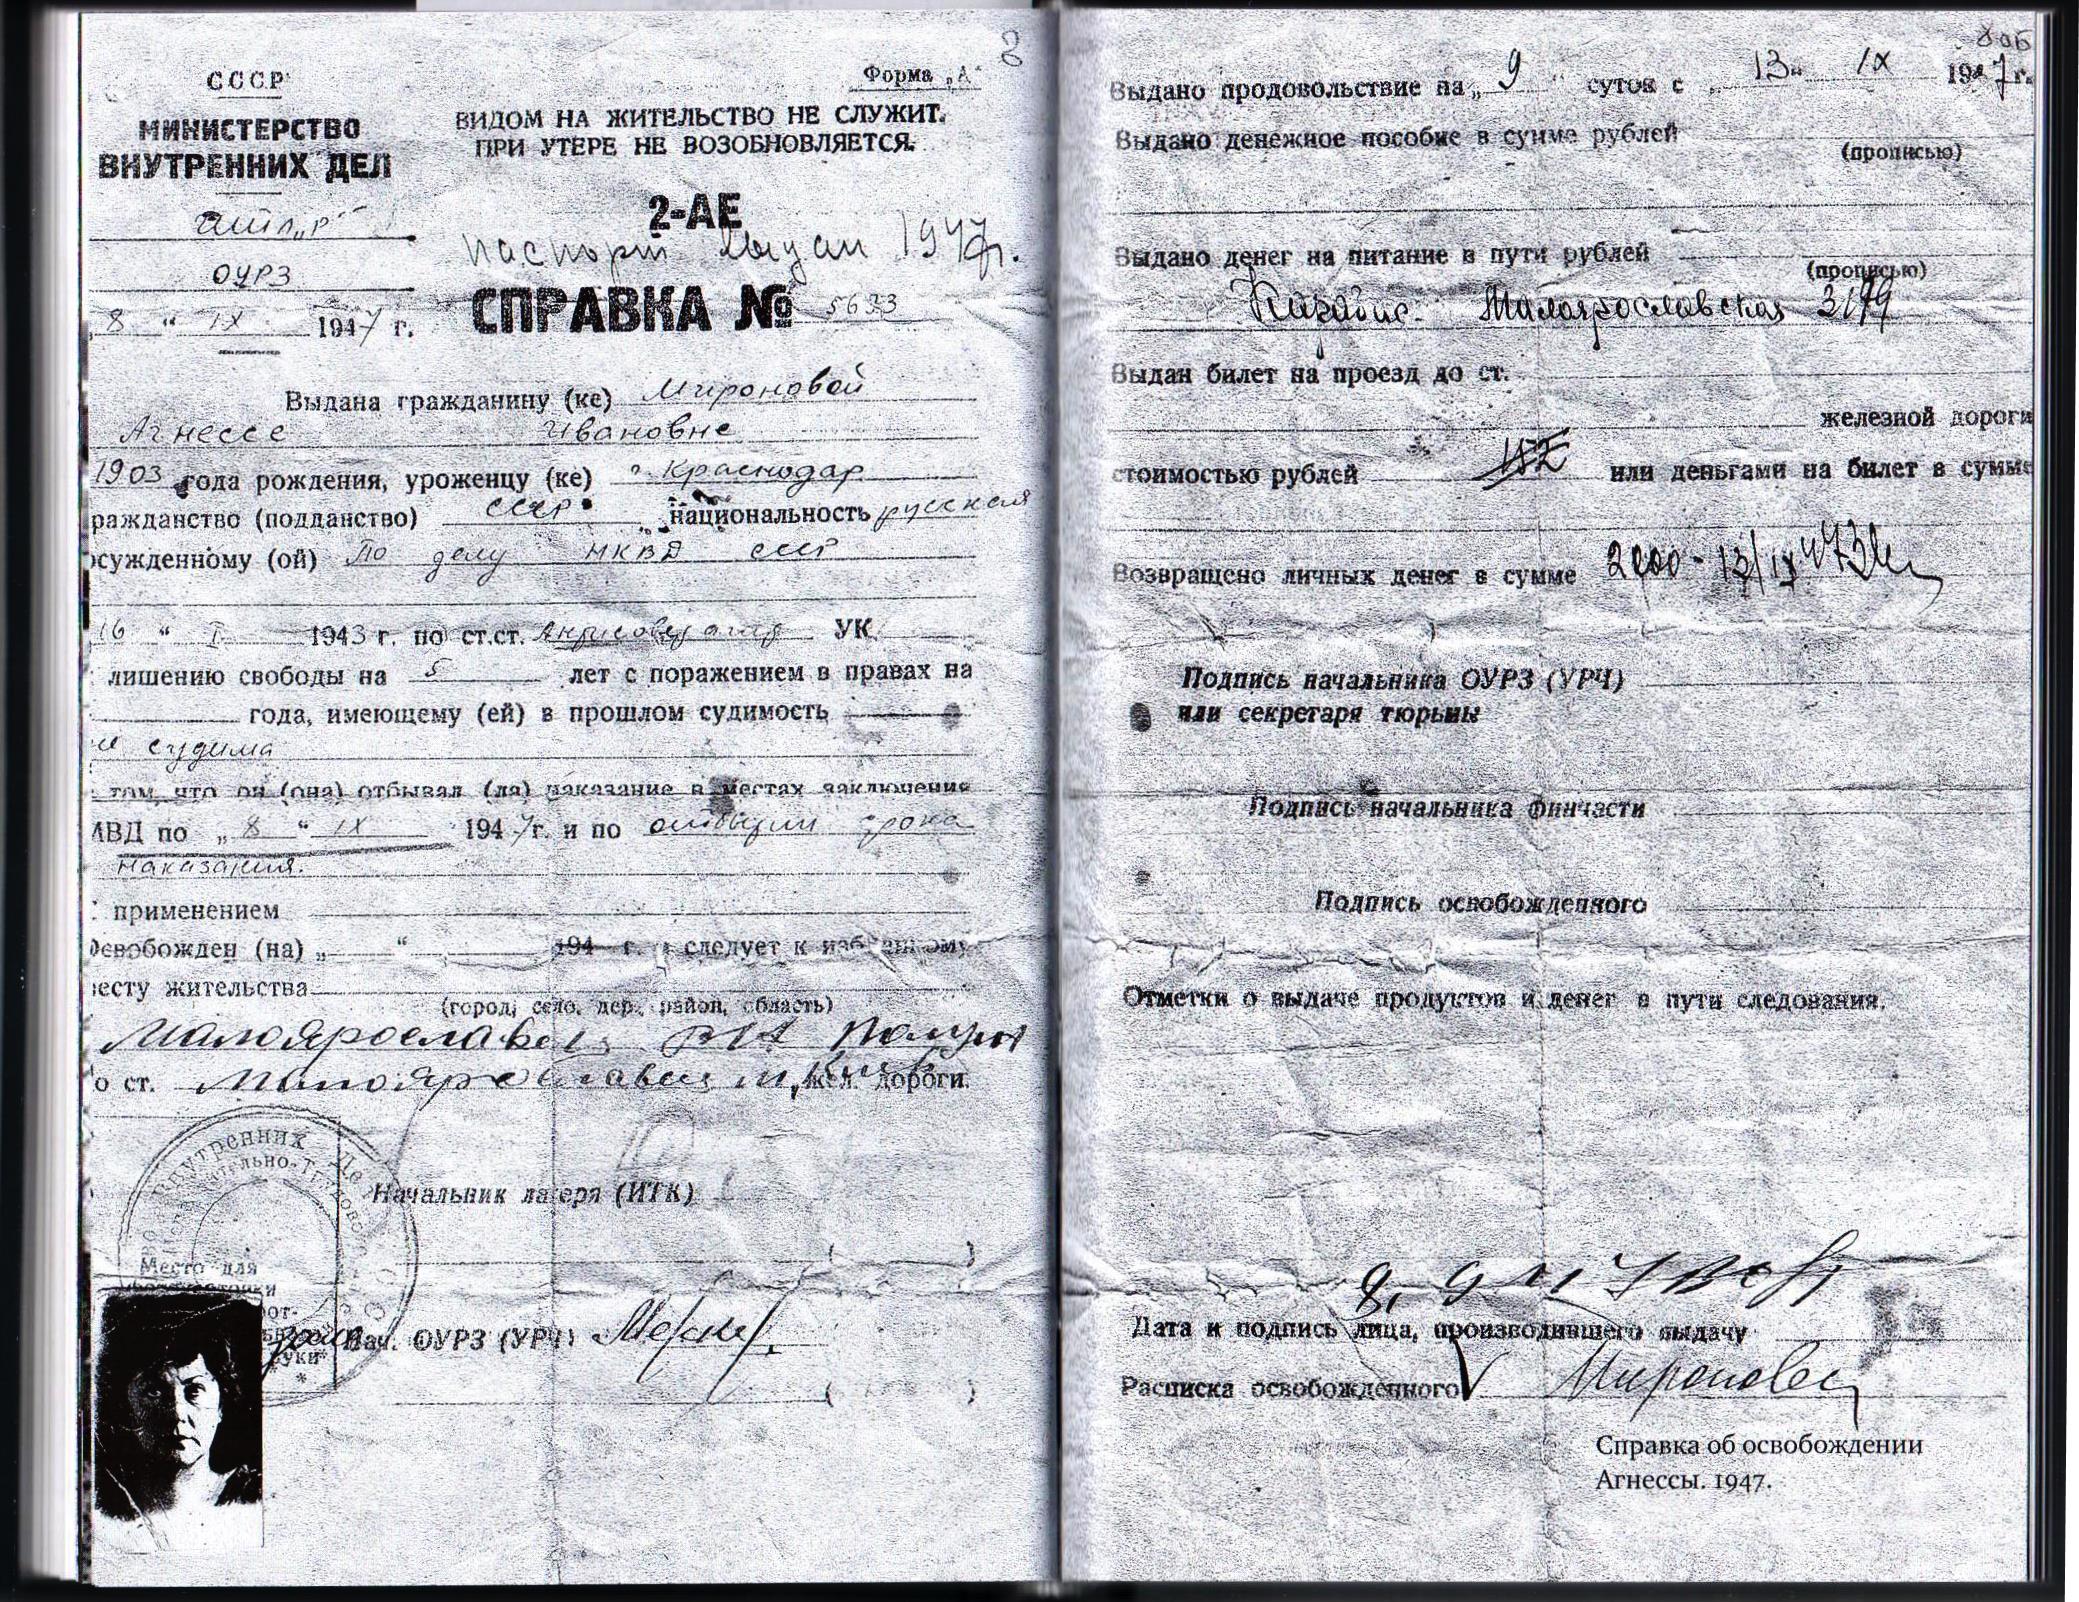 СССР
МИНИСТЕРСТВО
ВНУТРЕННИХ ДЕЛ
ОУРЗ
8 " IX 1947 г.
8
Форма „А"
ВИДОМ НА ЖИТЕЛЬСТВО НЕ СЛУЖИТ.
ПРИ УТЕРЕ НЕ ВОЗОБНОВЛЯЕТСЯ.
2-АЕ
паспорт выдан 1947г.
СПРАВКА № 5633
Выдана гражданину (ке) Мироновой
Агнессе Ивановне
1903 года рождения, уроженцу (ке) г. Краснодар
ражданство (подданство) СССР национальность русская
осужденному (ой) По делу НКВД СССР
16 " 1943 г. по ст.ст. УК
лишению свободы на 5 лет с поражением в правах на
года, имеющему (ей) в прошлом судимость
не судима
том, что он (она) отбывал (ла) наказание в местах заключение
МВД по „ 8 " IX 1947 г. и по отбытии срока
наказания.
применением
Освобожден (на) „ " 194 г. и следует к избранному
месту жительства
(город, село, дер., район, область)
Малоярославец
о ст. Малоярославец жел. дороги.
Начальник лагеря (ИТК)
Место для
Нач. ОУРЗ (УРЧ)
8 об
Выдано продовольствие на „ 9 " суток с „ 13 " IX 1947 г.
Выдано денежное пособие в сумме рублей
(прописью)
Выдано денег на питание в пути рублей
(прописью)
Малоярославская 3179
Выдан билет на проезд до ст.
железной дороги
стоимостью рублей или деньгами на билет в сумме
Возвращено личных денег в сумме 2000 - 13/IX 47
Подпись начальника ОУРЗ (УРЧ)
или секретаря тюрьмы
Подпись начальника финчасти
Подпись освобожденного
Отметки о выдаче продуктов и денег в пути следования.
Дата и подпись лица, производившего выдачу
Расписка освобожденного
Справка об освобождении
Агнессы. 1947.